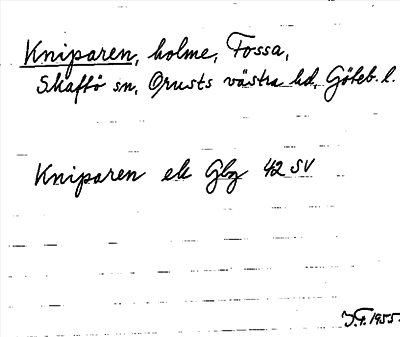 Kniparen, holme, Tossa,
Skaftö sn, Orusts västra hd, Göteb. l.
Kniparen ek Gbg 42 SV
J.F. 1955.